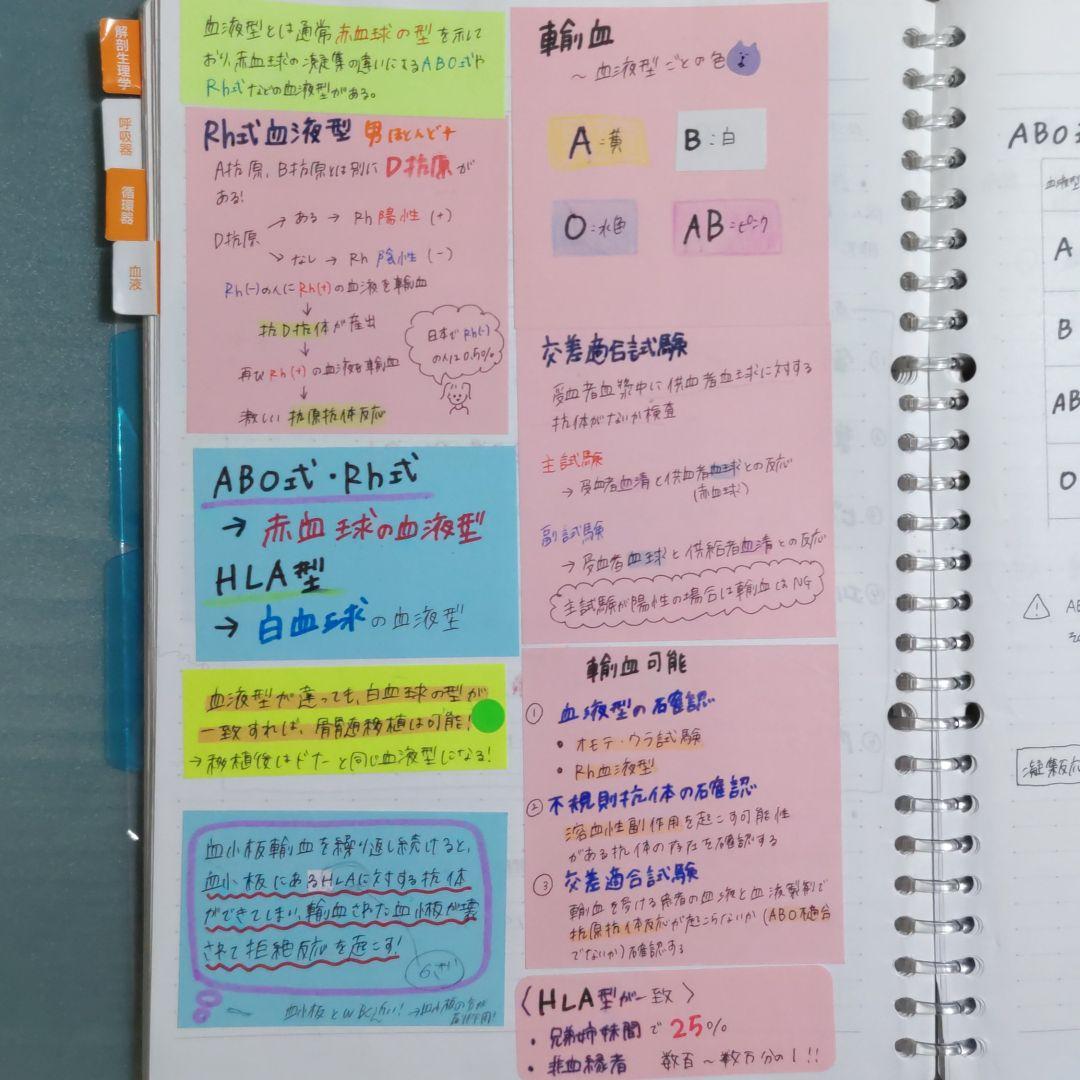 解剖生理学
呼吸器
循環器
血液
血液型とは通常赤血球の型を示して
おり、赤血球の凝集の違いによるABO式や
Rh式などの血液型がある。
Rh式血液型 男ほとんど+
A抗原、B抗原とは別にD抗原が
ある!
D抗原
→ ある → Rh陽性 (+)
→ なし → Rh 陰性 (-)
Rh(-)の人にRh(+)の血液を輸血
↓
抗D抗体が産出
↓
再びRh(+)の血液を輸血
↓
激しい抗原抗体反応
日本でRh(-)
の人は0.5%
ABO式・Rh式
→ 赤血球の血液型
HLA型
→ 白血球の血液型
血液型が違っても、白血球の型が
一致すれば、骨髄移植は可能!
→移植後はドナーと同じ血液型になる!
血小板輸血を繰り返し続けると、
血小板にあるHLAに対する抗体
ができてしまい、輸血された血小板が壊
されて拒絶反応を起こす!
輸血
～血液型ごとの色
A:黄
B:白
O:水色
AB:ピンク
交差適合試験
受血者血漿中に供血者血球に対する
抗体がないか検査
主試験
→受血者血清と供血者血球との反応
(赤血球)
副試験
→受血者血球と供給者血清との反応
主試験が陽性の場合は輸血はNG
輸血可能
① 血液型の確認
・オモテ・ウラ試験
・Rh血液型
② 不規則抗体の確認
溶血性副作用を起こす可能性
がある抗体の存在を確認する
③ 交差適合試験
輸血を受ける患者の血液と血液製剤で
抗原抗体反応が起こらないか(ABO不適合
でないか)確認する
〈HLA型が一致〉
・兄弟姉妹間で25%
・非血縁者 数百～数万分の1!!
ABO
血液型
A
B
AB
O
AB
凝集反応